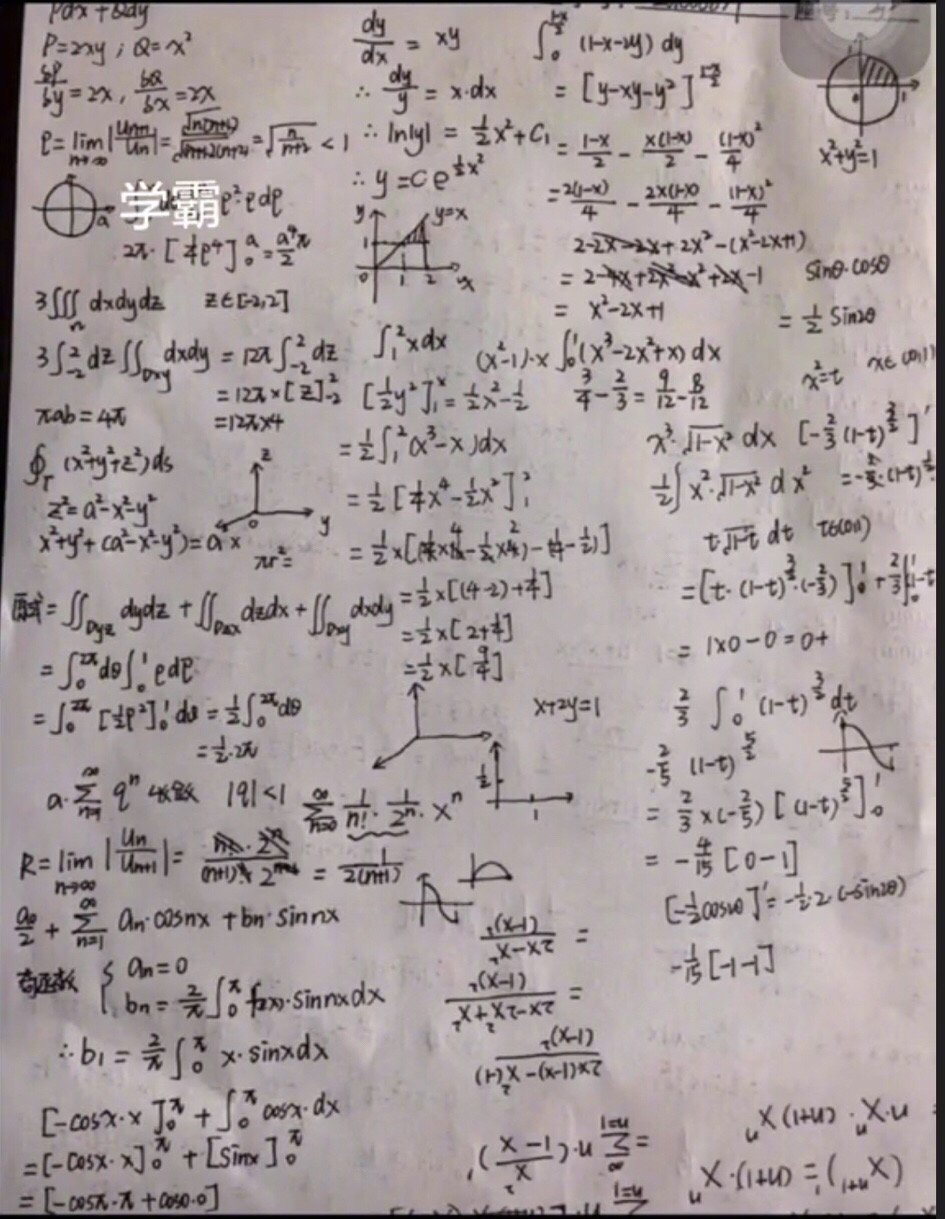 Pdx + Qdy
P=2xy ; Q=x²
δP/δy = 2x, δQ/δx = 2x
ρ = lim n→∞ |Un+1/Un| = √n(n+1)/√(n+1)(n+2) = √n/(n+2) < 1
a
学霸
ρ²·ρdρ
2π·[¼ρ⁴]₀ᵃ = a⁴/2 π
3∭Ω dxdydz z∈[-2,2]
3∫₋₂² dz ∬Dxy dxdy = 12π∫₋₂² dz
= 12π×[z]₋₂²
πab = 4π
=12π×4
∮Γ (x²+y²+z²)ds
z²=a²-x²-y²
x²+y²+(a²-x²-y²)=a²
z
o
y
x
πr²=
原式 = ∬Dyz dydz + ∬Dzx dzdx + ∬Dxy dxdy
= ∫₀²π dθ ∫₀¹ ρdρ
= ∫₀²π [½ρ²]₀¹ dθ = ½∫₀²π dθ
= ½·2π
a·∑n=1∞ qⁿ 收敛 |q|<1
∑n=0∞ 1/n!·1/2ⁿ·xⁿ
R = lim n→∞ |Un/Un+1| = n!·2ⁿ/(n+1)!·2ⁿ⁺¹ = 1/2(n+1)
a₀/2 + ∑n=1∞ an·cosnx + bn·sinnx
奇函数 { an=0
bn = 2/π ∫₀π f(x)·sinnxdx
∴ b₁ = 2/π ∫₀π x·sinxdx
[-cosx·x]₀π + ∫₀π cosx·dx
=[-cosx·x]₀π + [sinx]₀π
= [-cosπ·π + cos0·0]
dy/dx = xy
∴ dy/y = x·dx
∴ ln|y| = ½x²+C₁
∴ y = Ce^½x²
y
y=x
1
0 1 2 x
∫₁² xdx
[½y²]₁ˣ = ½x²-½
(x²-1)·x
= ½∫₁²(x³-x)dx
= ½[¼x⁴-½x²]₁²
= ½×[(¼×16-½×4)-(¼-½)]
= ½×[(4-2)+¼]
= ½×[2+¼]
= ½×[9/4]
x+2y=1
½
1
∫₀^(1-x)/2 (1-x-2y) dy
= [y-xy-y²]^(1-x)/2
= (1-x)/2 - x(1-x)/2 - (1-x)²/4
= 2(1-x)/4 - 2x(1-x)/4 - (1-x)²/4
2-2x-2x+2x²-(x²-2x+1)
= 2-4x+2x²-x²+2x-1
= x²-2x+1
∫₀¹(x³-2x²+x)dx
3/4 - 2/3 = 9/12 - 8/12
0 1
x²+y²=1
sinθ·cosθ
= ½ sin2θ
x²=t x∈(0,1)
x³·√1-x² dx
[-⅔(1-t)^3/2]'
½∫x²·√1-x² dx²
t√1-t dt t∈(0,1)
=[t·(1-t)^3/2·(-⅔)]₀¹ + ⅔∫₀¹(1-t
= 1×0-0=0+
⅔ ∫₀¹ (1-t)^3/2 dt
-⅖ (1-t)^5/2
= ⅔×(-⅖) [(1-t)^5/2]₀¹
= -4/15 [0-1]
[-½cos2θ]' = -½·2·(-sin2θ)
-1/15[-1-1]
= 2x-x²/(1-x)²
= 2x-2x²+x²/(1-x)²
2x(1-x)-x²(-1)/(1-x)²
= ∑n=1∞ n·(x²/1-x)'
n·x·xⁿ(n+1)xⁿ
(xⁿ⁺¹)' = (n+1)·xⁿ